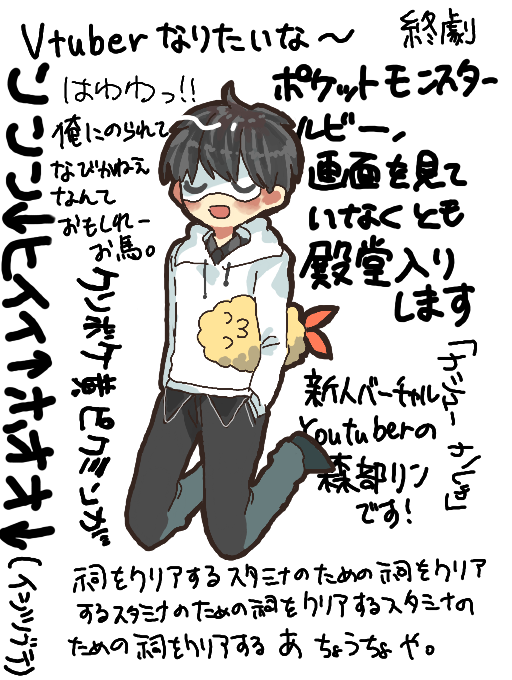 Vtuberなりたいな〜
終劇
はわわっ!!
俺にのられて
なびかねえ
なんて
おもしれー
お馬。
ポケットモンスター
ルビー、
画面を見て
いなくとも
殿堂入り
します
ンンン↓ヒイイ↑ホオオオ↓(インツヅラ)
クソボケ黄ピクミンが
新人バーチャル
Youtuberの
森部リン
です!
祠をクリアするスタミナのための祠をクリア
するスタミナのための祠をクリアするスタミナの
ための祠をクリアする あ ちょうちょや。